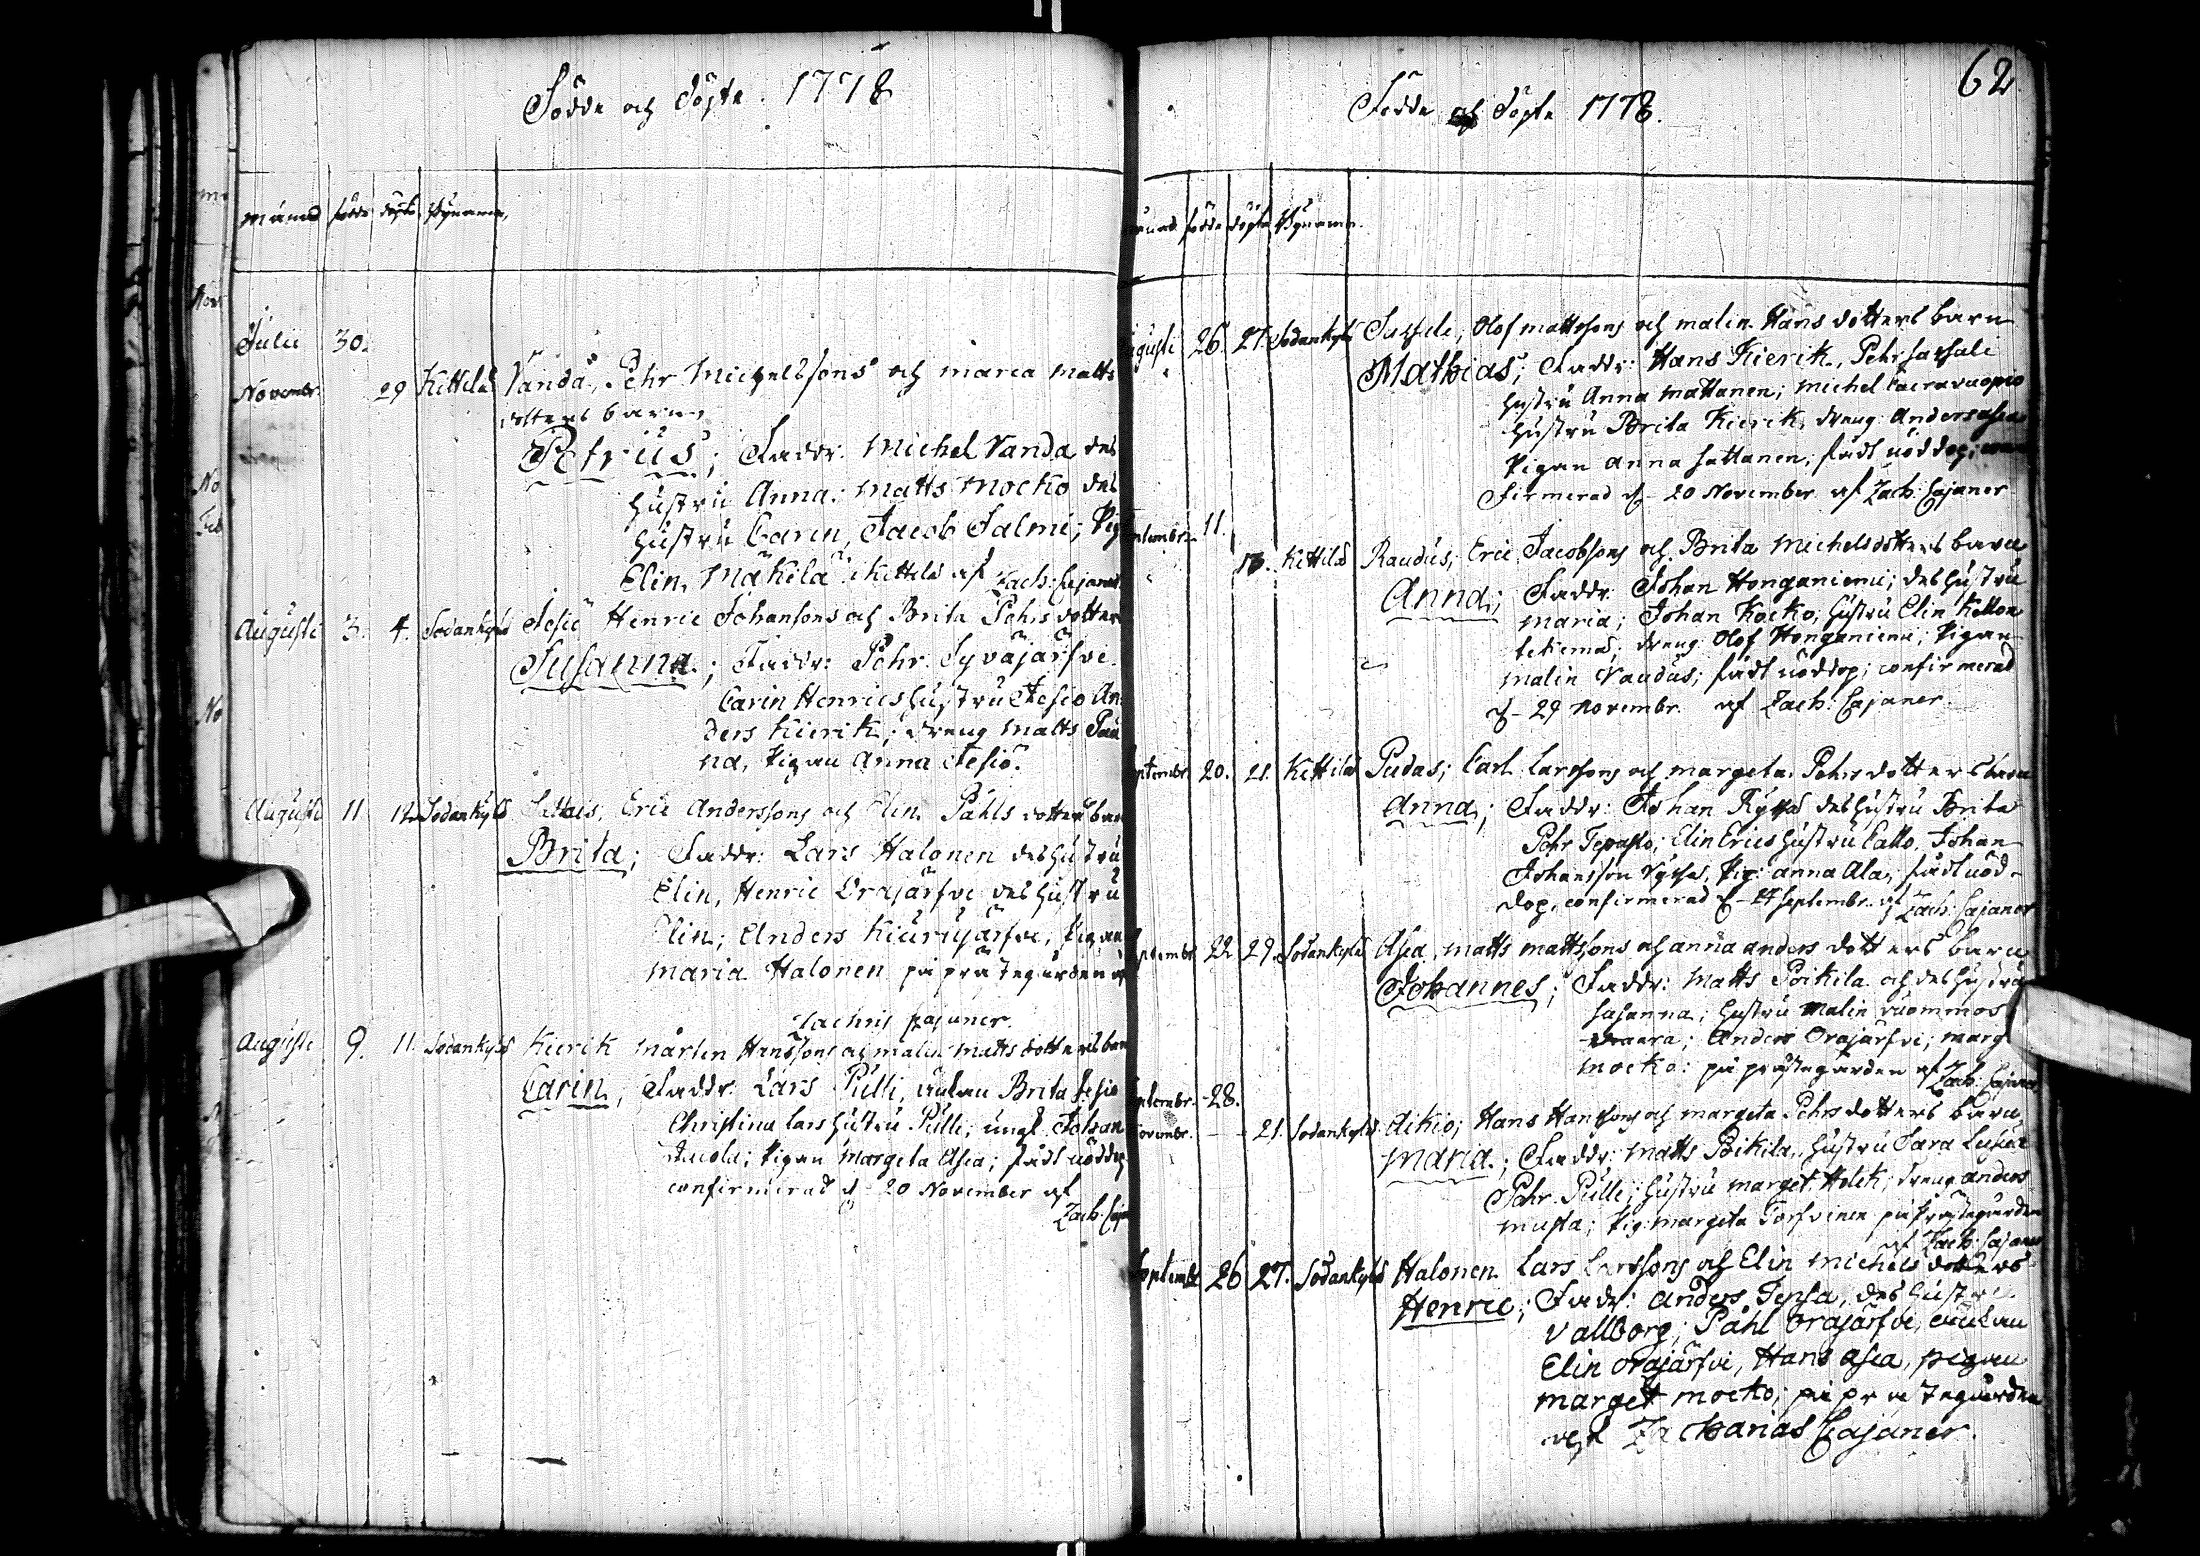 Födde och Döpte. 1778
månad födde döpte Bÿnamn,
Julii 30.
Novembr. 29 Kittilä Vanda, Pehr Michelssons och maria matts
dotters barn,
Petrus; Faddr: Michel Vanda des
hustru Anna: Matts Mocko des
hustru Carin, Jacob Salmi; Pig
Elin Mäkilä i Kittilä af Zach: Cajaner
Augusti 3. 4. Sodankylä Jesiö Henric Johansons och Brita Pehrs dotter
Susanna; Faddr: Pehr Syväjärfvi.
Carin Henrics hustru Jesiö An-
ders Kierik; dreng Matts Pau
na, Pigan Anna Jesiö.
Augusti 11 12. Sodankylä Sattais, Eric Anderssons och Elin Påhls dotters bar
Brita; Faddr: Lars Halonen des hustru
Elin, Henric Orajärfvi des hustru
Elin; Anders Kiurujärfvi, Pigan
maria Halonen på prästegården af
Zachris Cajaner.
Augusti 9. 11. Sodankylä Kierik mårten Hanssons och malin matts dotters barn
Carin, Faddr: Lars Pulli, Brita Jesiö
Christina Lars hustru Pulli; ungk. Johan
Pigan Margeta Asea; fådt nöddop
confirmerad d - 20 November af
Zach: Caja
62
Födde och Döpte 1778.
månad födde döpte Bÿnamn.
Augusti 26. 27. Sodankylä Sassali, Olof mattssons och malin Hans dotters barn
Mathias; Faddr: Hans Kierik, Pehr Sassali
hustru Anna Mattanen; Michel
hustru Brita Kierik, dreng Anders Asea
Pigan Anna Sattanen, fådt nöddop; con
firmerad d - 20 November af Zach: Cajaner
Septembr. 11.
13. Kittilä Raudus, Eric Jacobssons och Brita Michelsdotters barn
Anna; Faddr: Johan Honganiemi; des hustru
maria; Johan Kocko, hustru Elin
dreng Olof Honganiemi; Pigan
malin Raudus; fådt nöddop; confirmerad
d - 29 Novembr. af Zach: Cajaner
Septembr. 20. 21. Kittilä Pudas; Carl Larssons och margeta Pehrs dotters barn
Anna; Faddr: Johan des hustru Brita
Pehr Tepasto; Elin Erics hustru Johan
Johansson Pig: anna Ala, fådt nöd-
dop, confirmerad d - 24 Septembr. af Zach: Cajaner
Septembr. 22 29. Sodankylä Asea, matts mattssons och anna anders dotters barn
Johannes; Faddr: Matts Poikila och des hustru
Susanna; hustru Malin vuommos
vaara; Anders Orajärfvi; marg
mocko: på prästegården af Zach: Cajaner
Septembr. 28.
Novembr. - - 21. Sodankylä Aikio; Hans Hanssons och margeta Pehrs dotters barn
maria; Faddr: Matts Poikila, hustru Sara
Pehr Pulli; hustru marget dreng anders
musta; Pig: margeta Torfvinen på Prästegården
af Zach: Cajaner
Septembr 26 27. Sodankylä Halonen Lars Larssons och Elin Michels dotters
Henric; Fadr: anders Tepsa, des hustru
Vallborg; Påhl Orajärfvi, enkan
Elin Orajärfvi, Hans Asea, pigan
marget mocko; på prästegården
af Zacharias Cajaner.